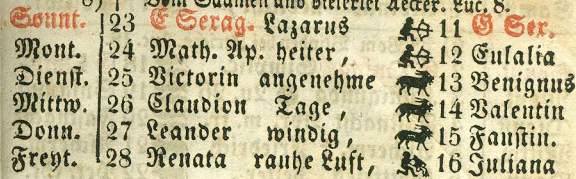 Vom Saamen und vielerley Aecker. Luc. 8.
Sonnt. 23 E Sexag. Lazarus 11 G Sex.
Mont. 24 Math. Ap. heiter, 12 Eulalia
Dienst. 25 Victorin angenehme 13 Benignus
Mittw. 26 Claudion Tage, 14 Valentin
Donn. 27 Leander windig, 15 Faustin.
Freyt. 28 Renata rauhe Luft, 16 Juliana